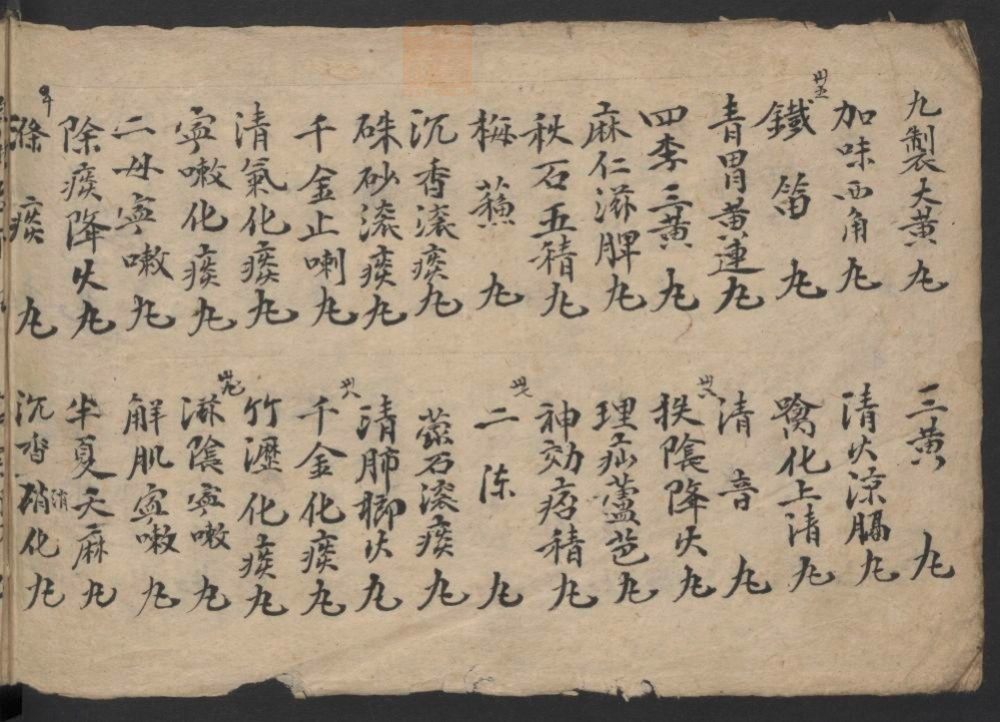 九製大黄丸
加味西角丸
鐵笛丸
青胃黄連丸
四季三黄丸
麻仁滋脾丸
秋石五積丸
梅蘓丸
沉香滚痰丸
硃砂滚痰丸
千金止喇丸
清氣化痰丸
寜嗽化痰丸
二母寜嗽丸
除痰降火丸
滌痰丸
三黄丸
清火涼膈丸
噙化上清丸
清音丸
秩陰降火丸
理疝蘆芭丸
神効痞積丸
二陈丸
蒙石滚痰丸
清肺抑火丸
千金化痰丸
竹瀝化痰丸
滋陰寜嗽丸
解肌寜嗽丸
半夏天麻丸
沉香硝化丸
消